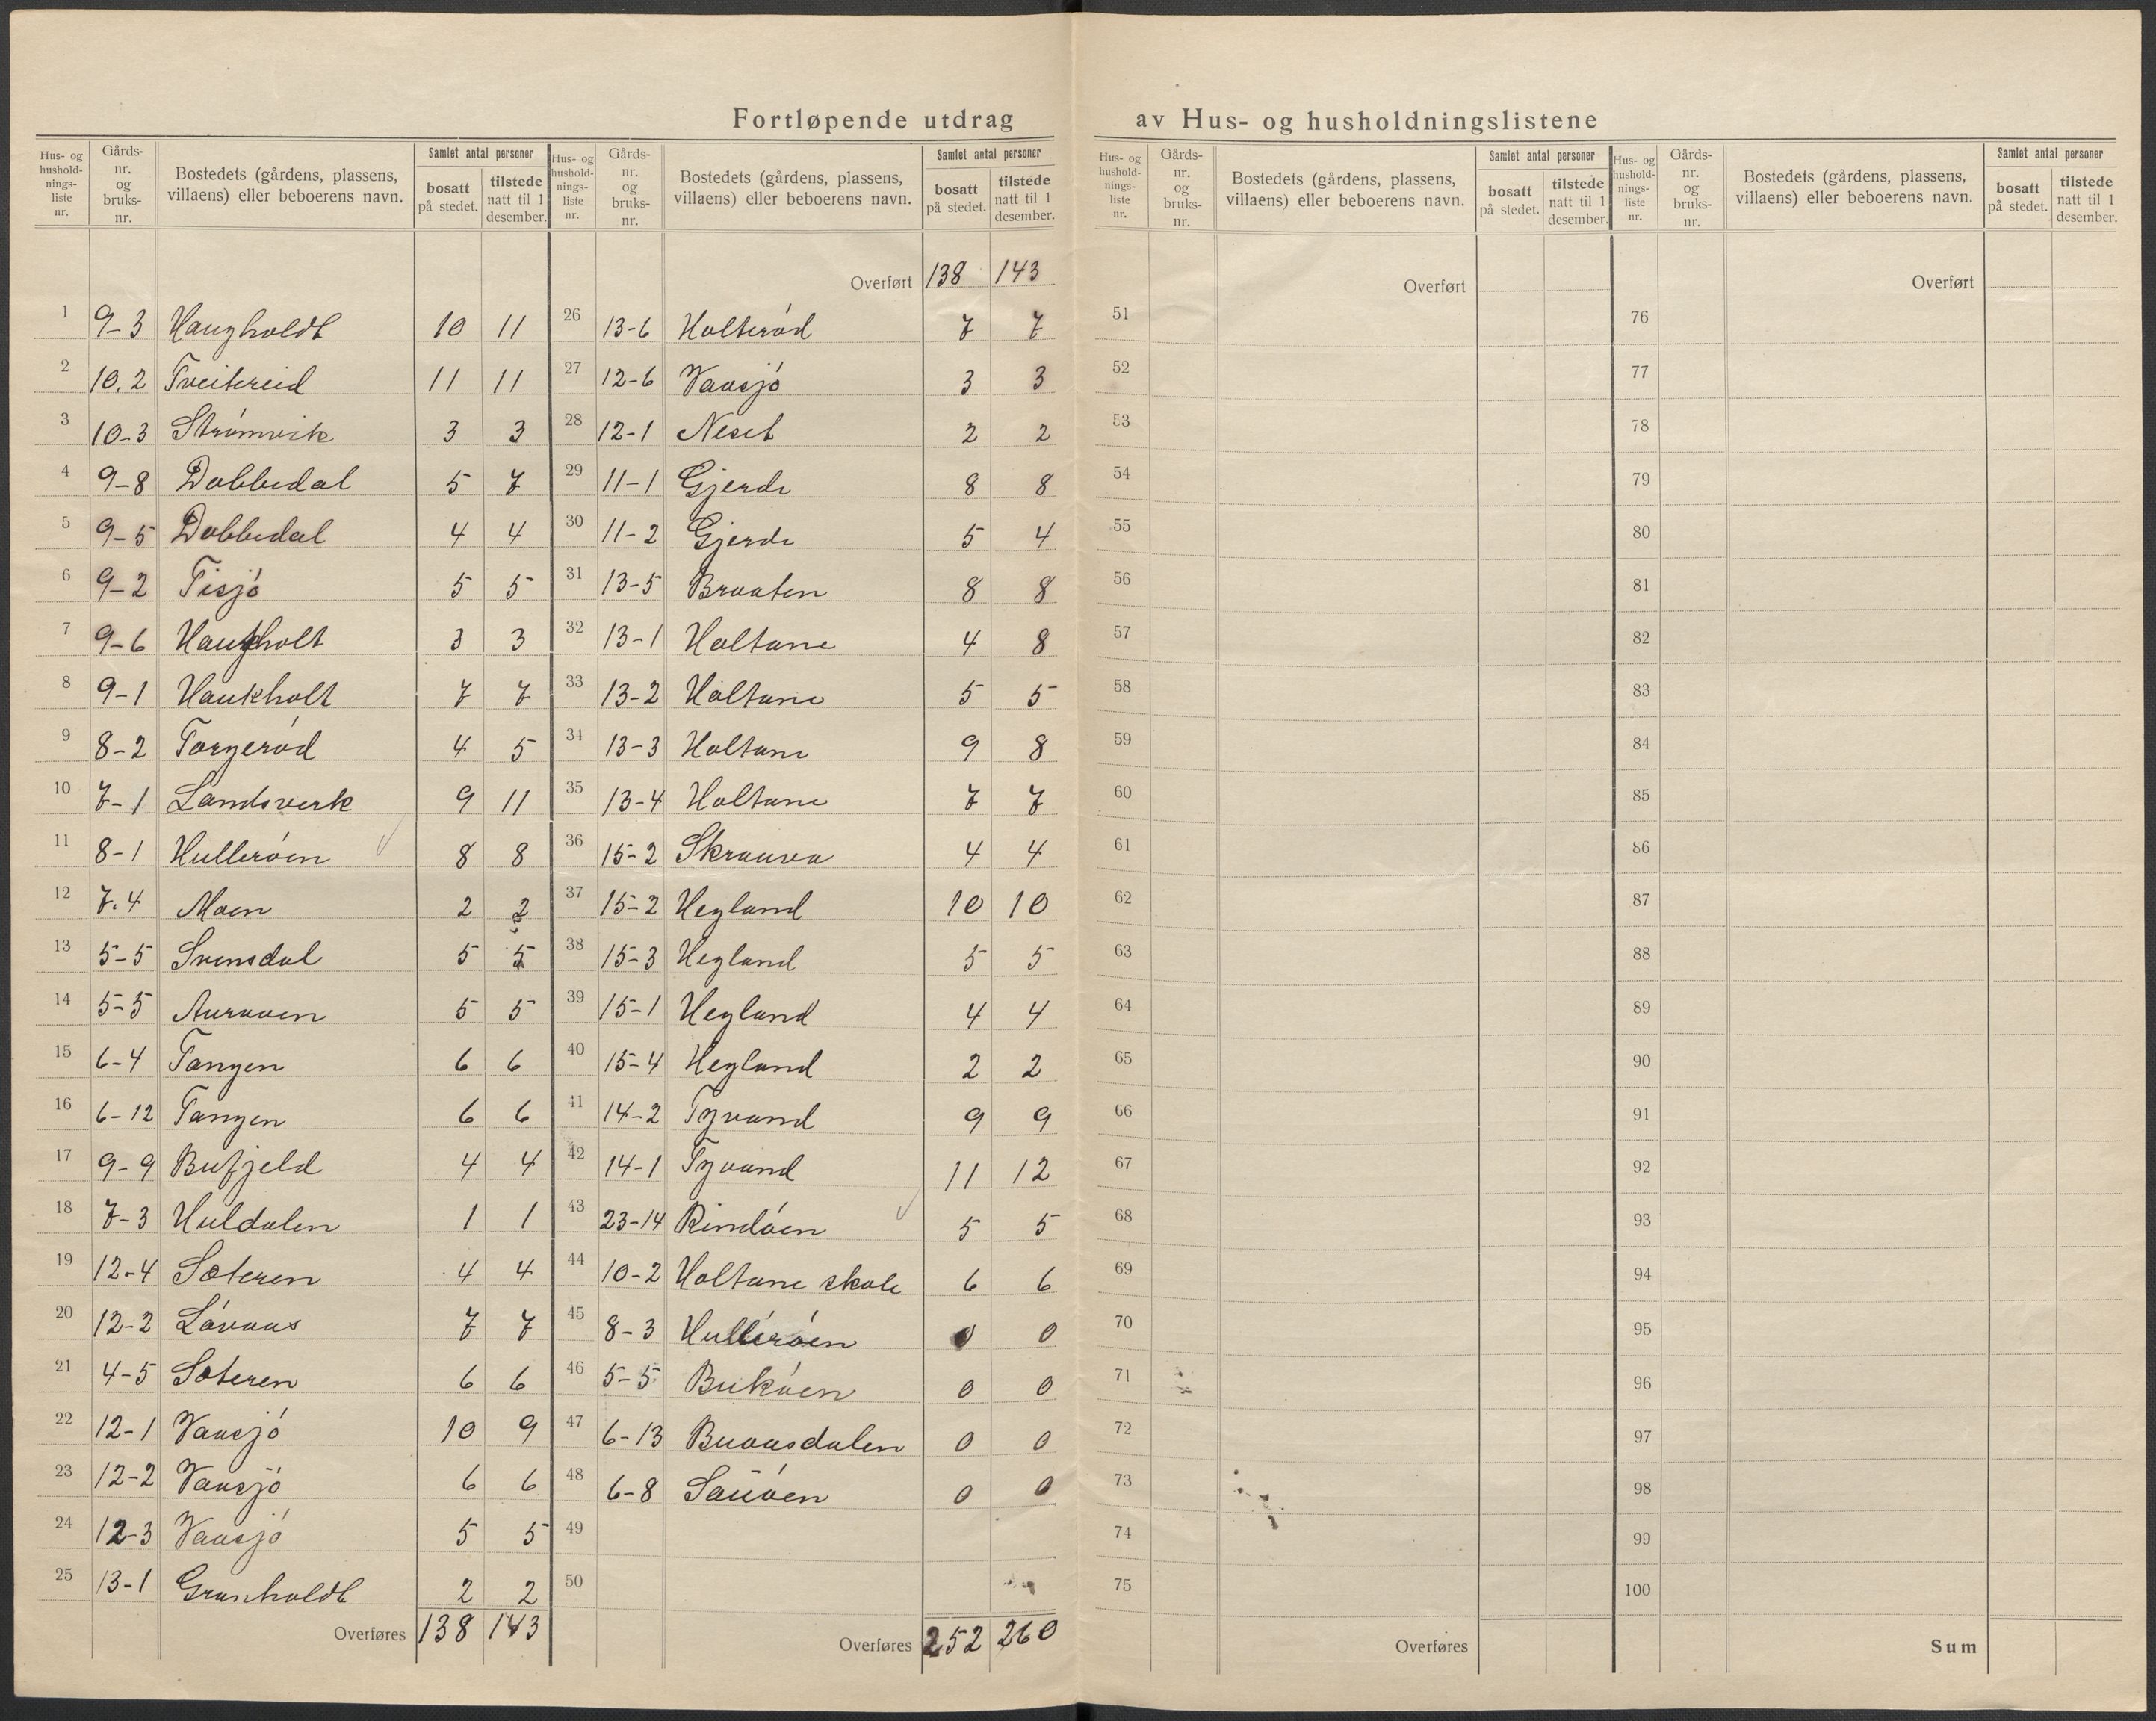 Fortløpende utdrag av Hus- og husholdningslistene
Hus- og hushold- nings- liste nr. | Gårds- nr. og bruks- nr. | Bostedets (gårdens, plassens, villaens) eller beboerens navn. | Samlet antal personer | bosatt på stedet. | tilstede natt til 1 desember.
1 9-3 Haugholdt 10 11
2 10.2 Tveitereid 11 11
3 10-3 Strømvik 3 3
4 9-8 Dobbedal 5 7
5 9-5 Dobbedal 4 4
6 9-2 Tisjó 5 5
7 9-6 Haukholt 3 3
8 9-1 Haukholt 7 7
9 8-2 Torgerød 4 5
10 7-1 Landsverk 9 11
11 8-1 Hulleróen 8 8
12 7.4 Moen 2 2
13 5-5 Svensdal 5 5
14 5-5 Auraaen 5 5
15 6-4 Tangen 6 6
16 6-12 Tangen 6 6
17 9-9 Bufjeld 4 4
18 7-3 Huldalen 1 1
19 12-4 Soteren 4 4
20 12-2 Lóvaas 7 7
21 4-5 Soteren 6 6
22 12-1 Vausjó 10 9
23 12-2 Vausjó 6 6
24 12-3 Vausjó 5 5
25 13-1 Granholdt 2 2
Overføres 138 143
Hus- og hushold- nings- liste nr. | Gårds- nr. og bruks- nr. | Bostedets (gårdens, plassens, villaens) eller beboerens navn. | Samlet antal personer | bosatt på stedet. | tilstede natt til 1 desember.
Overført 138 143
26 13-6 Holteród 7 7
27 12-6 Vausjó 3 3
28 12-1 Neset 2 2
29 11-1 Gjerde 8 8
30 11-2 Gjerde 5 4
31 13-5 Braaten 8 8
32 13-1 Holtane 4 8
33 13-2 Holtane 5 5
34 13-3 Holtane 9 8
35 13-4 Holtane 7 7
36 15-2 Skraava 4 4
37 15-2 Hegland 10 10
38 15-3 Hegland 5 5
39 15-1 Hegland 4 4
40 15-4 Hegland 2 2
41 14-2 Tyvand 9 9
42 14-1 Tyvand 11 12
43 23-14 Rindóen 5 5
44 10-2 Holtane skole 6 6
45 8-3 Hulleróen 0 0
46 5-5 Bukóen 0 0
47 6-13 Buaasdalen 0 0
48 6-8 Sauóen 0 0
49
50
Overføres 252 260
Hus- og hushold- nings- liste nr. | Gårds- nr. og bruks- nr. | Bostedets (gårdens, plassens, villaens) eller beboerens navn. | Samlet antal personer | bosatt på stedet. | tilstede natt til 1 desember.
Overført
51
52
53
54
55
56
57
58
59
60
61
62
63
64
65
66
67
68
69
70
71
72
73
74
75
Overføres
Hus- og hushold- nings- liste nr. | Gårds- nr. og bruks- nr. | Bostedets (gårdens, plassens, villaens) eller beboerens navn. | Samlet antal personer | bosatt på stedet. | tilstede natt til 1 desember.
Overført
76
77
78
79
80
81
82
83
84
85
86
87
88
89
90
91
92
93
94
95
96
97
98
99
100
Sum